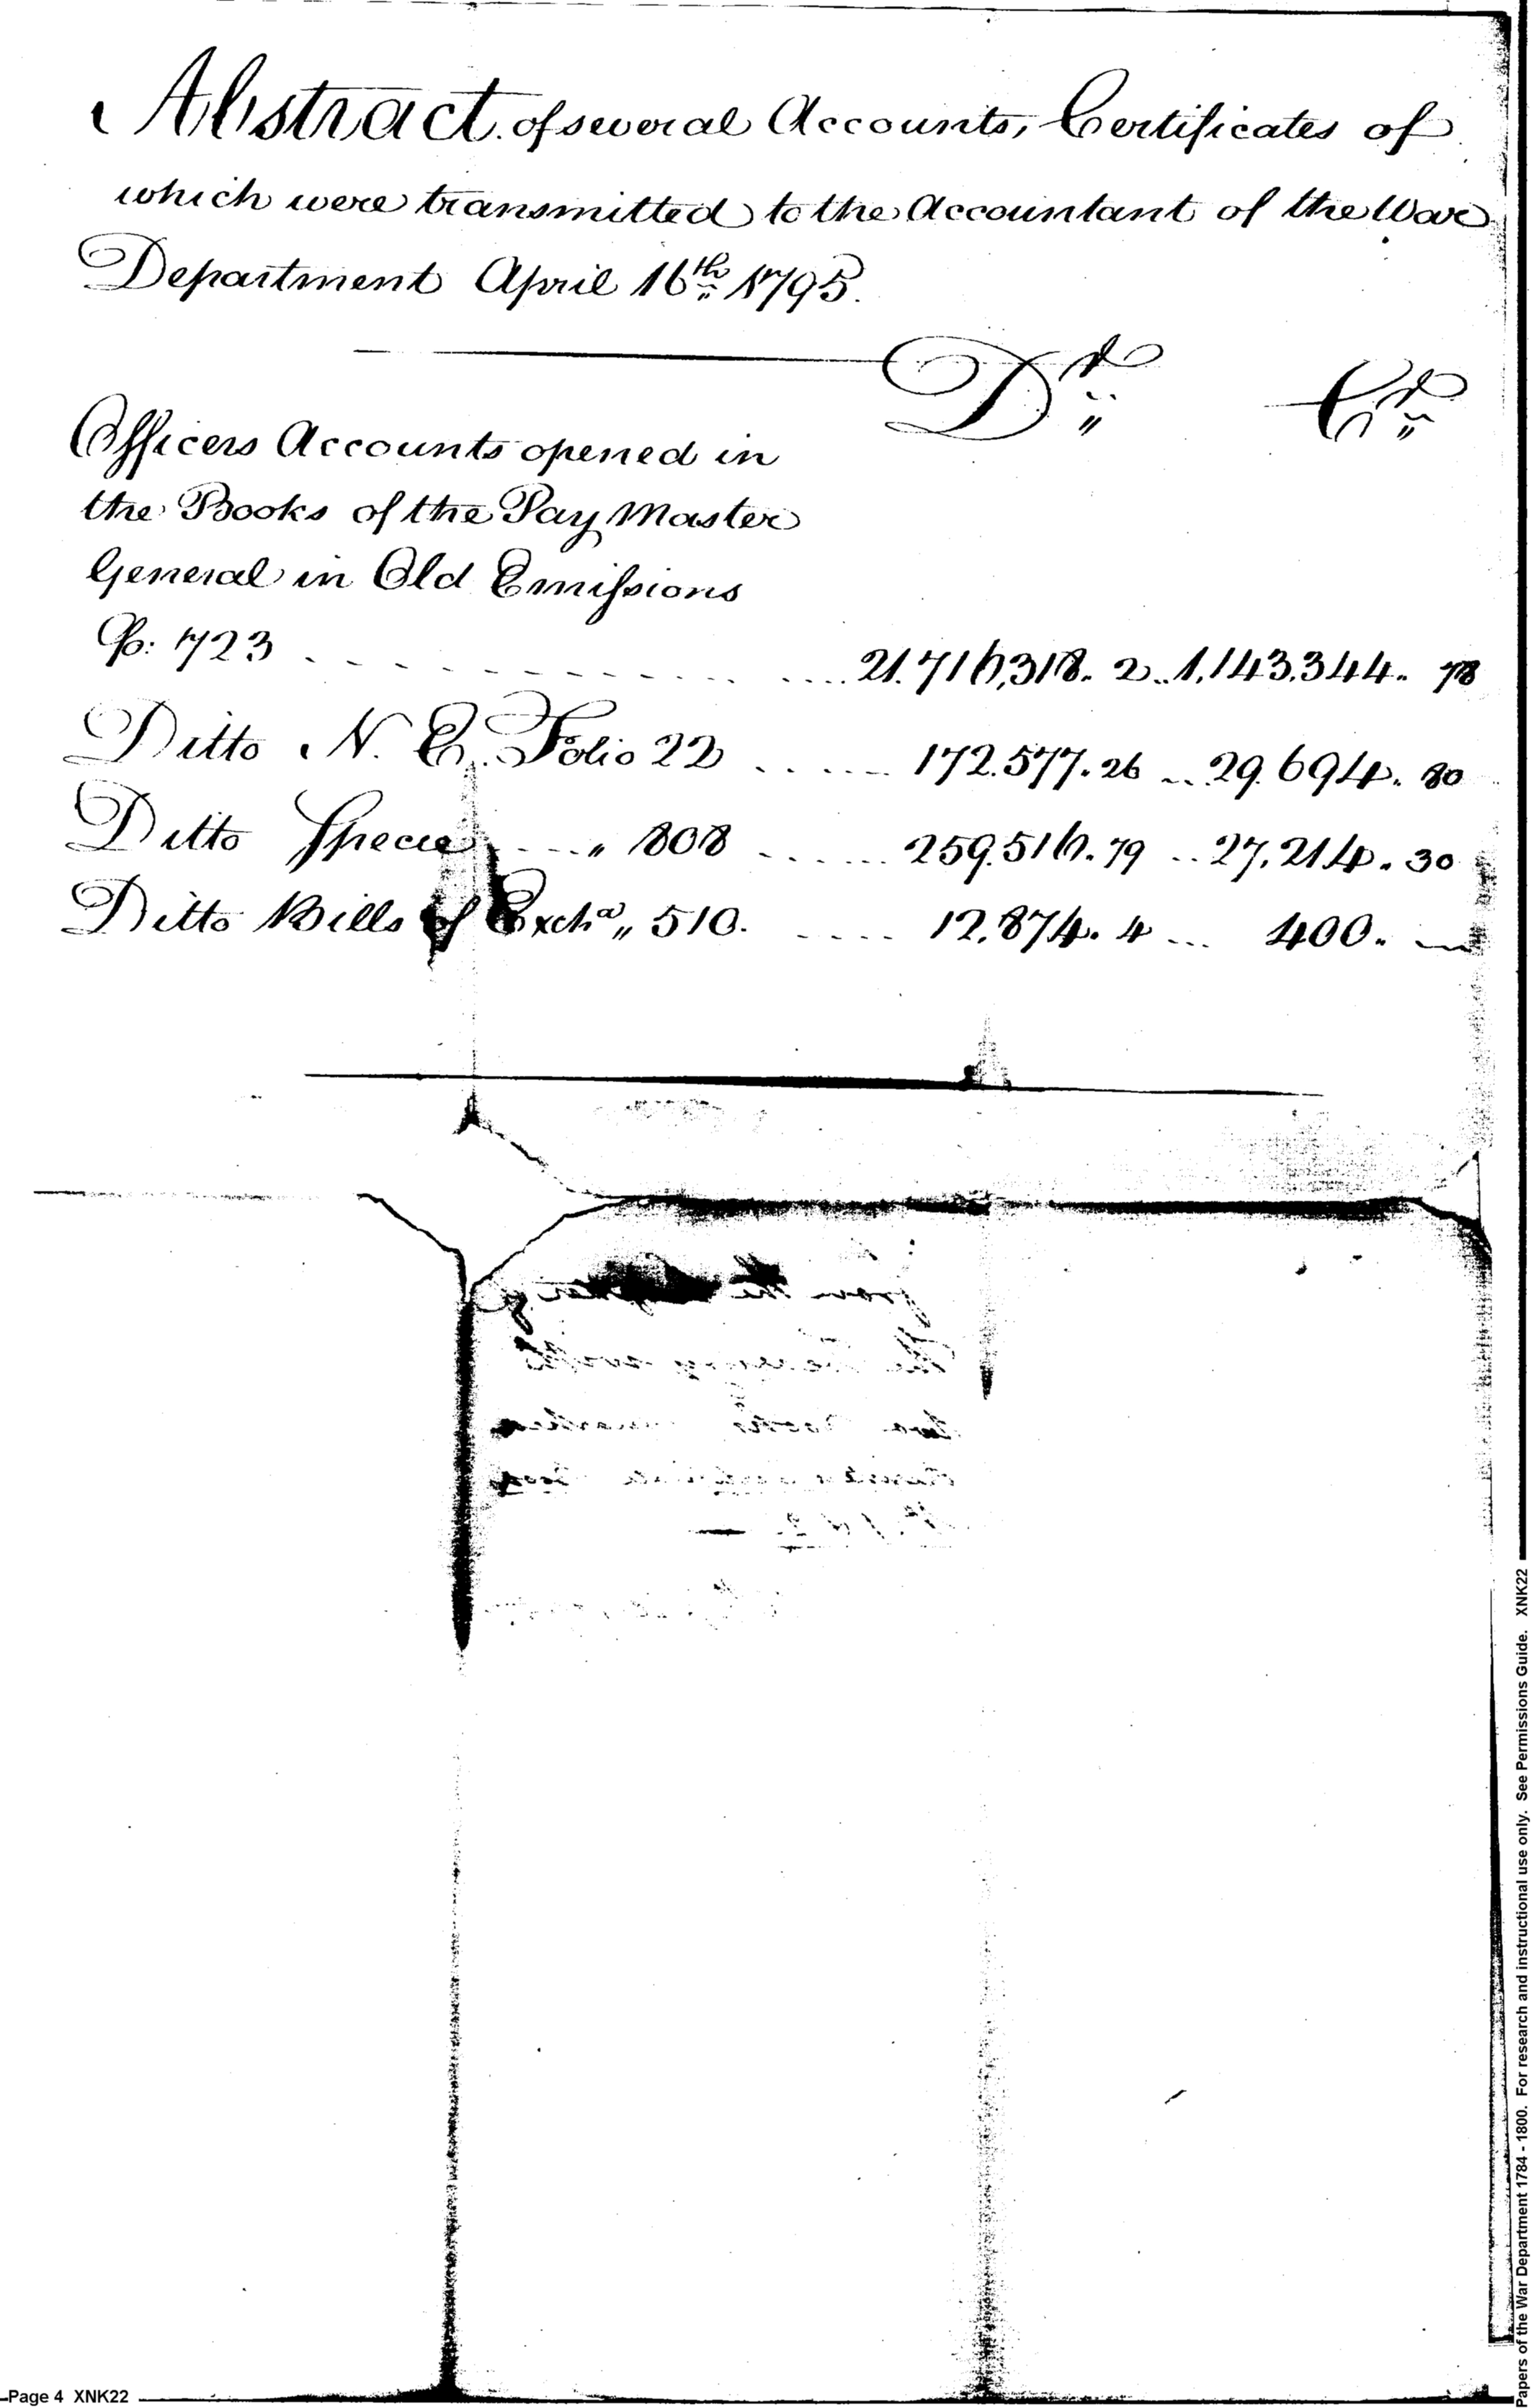 Abstract of several Accounts, Certificates of
which were transmitted to the Accountant of the War
Department April 16th 1795.
Dr Cr
Officers Accounts opened in
the Books of the Pay Master
General in Old Emissions
Fo: 723 21.716,318. 2 1,143.344. 78
Ditto N. E. Folio 22 172.577. 26 29.694. 80
Ditto Specie " 808 259.516. 79 27.214. 30
Ditto Bills of Excha " 510. 12.874. 4 400. —
from the
the
two
No. 1 & 2. —
Page 4 XNK22
Papers of the War Department 1784 - 1800. For research and instructional use only. See Permissions Guide. XNK22